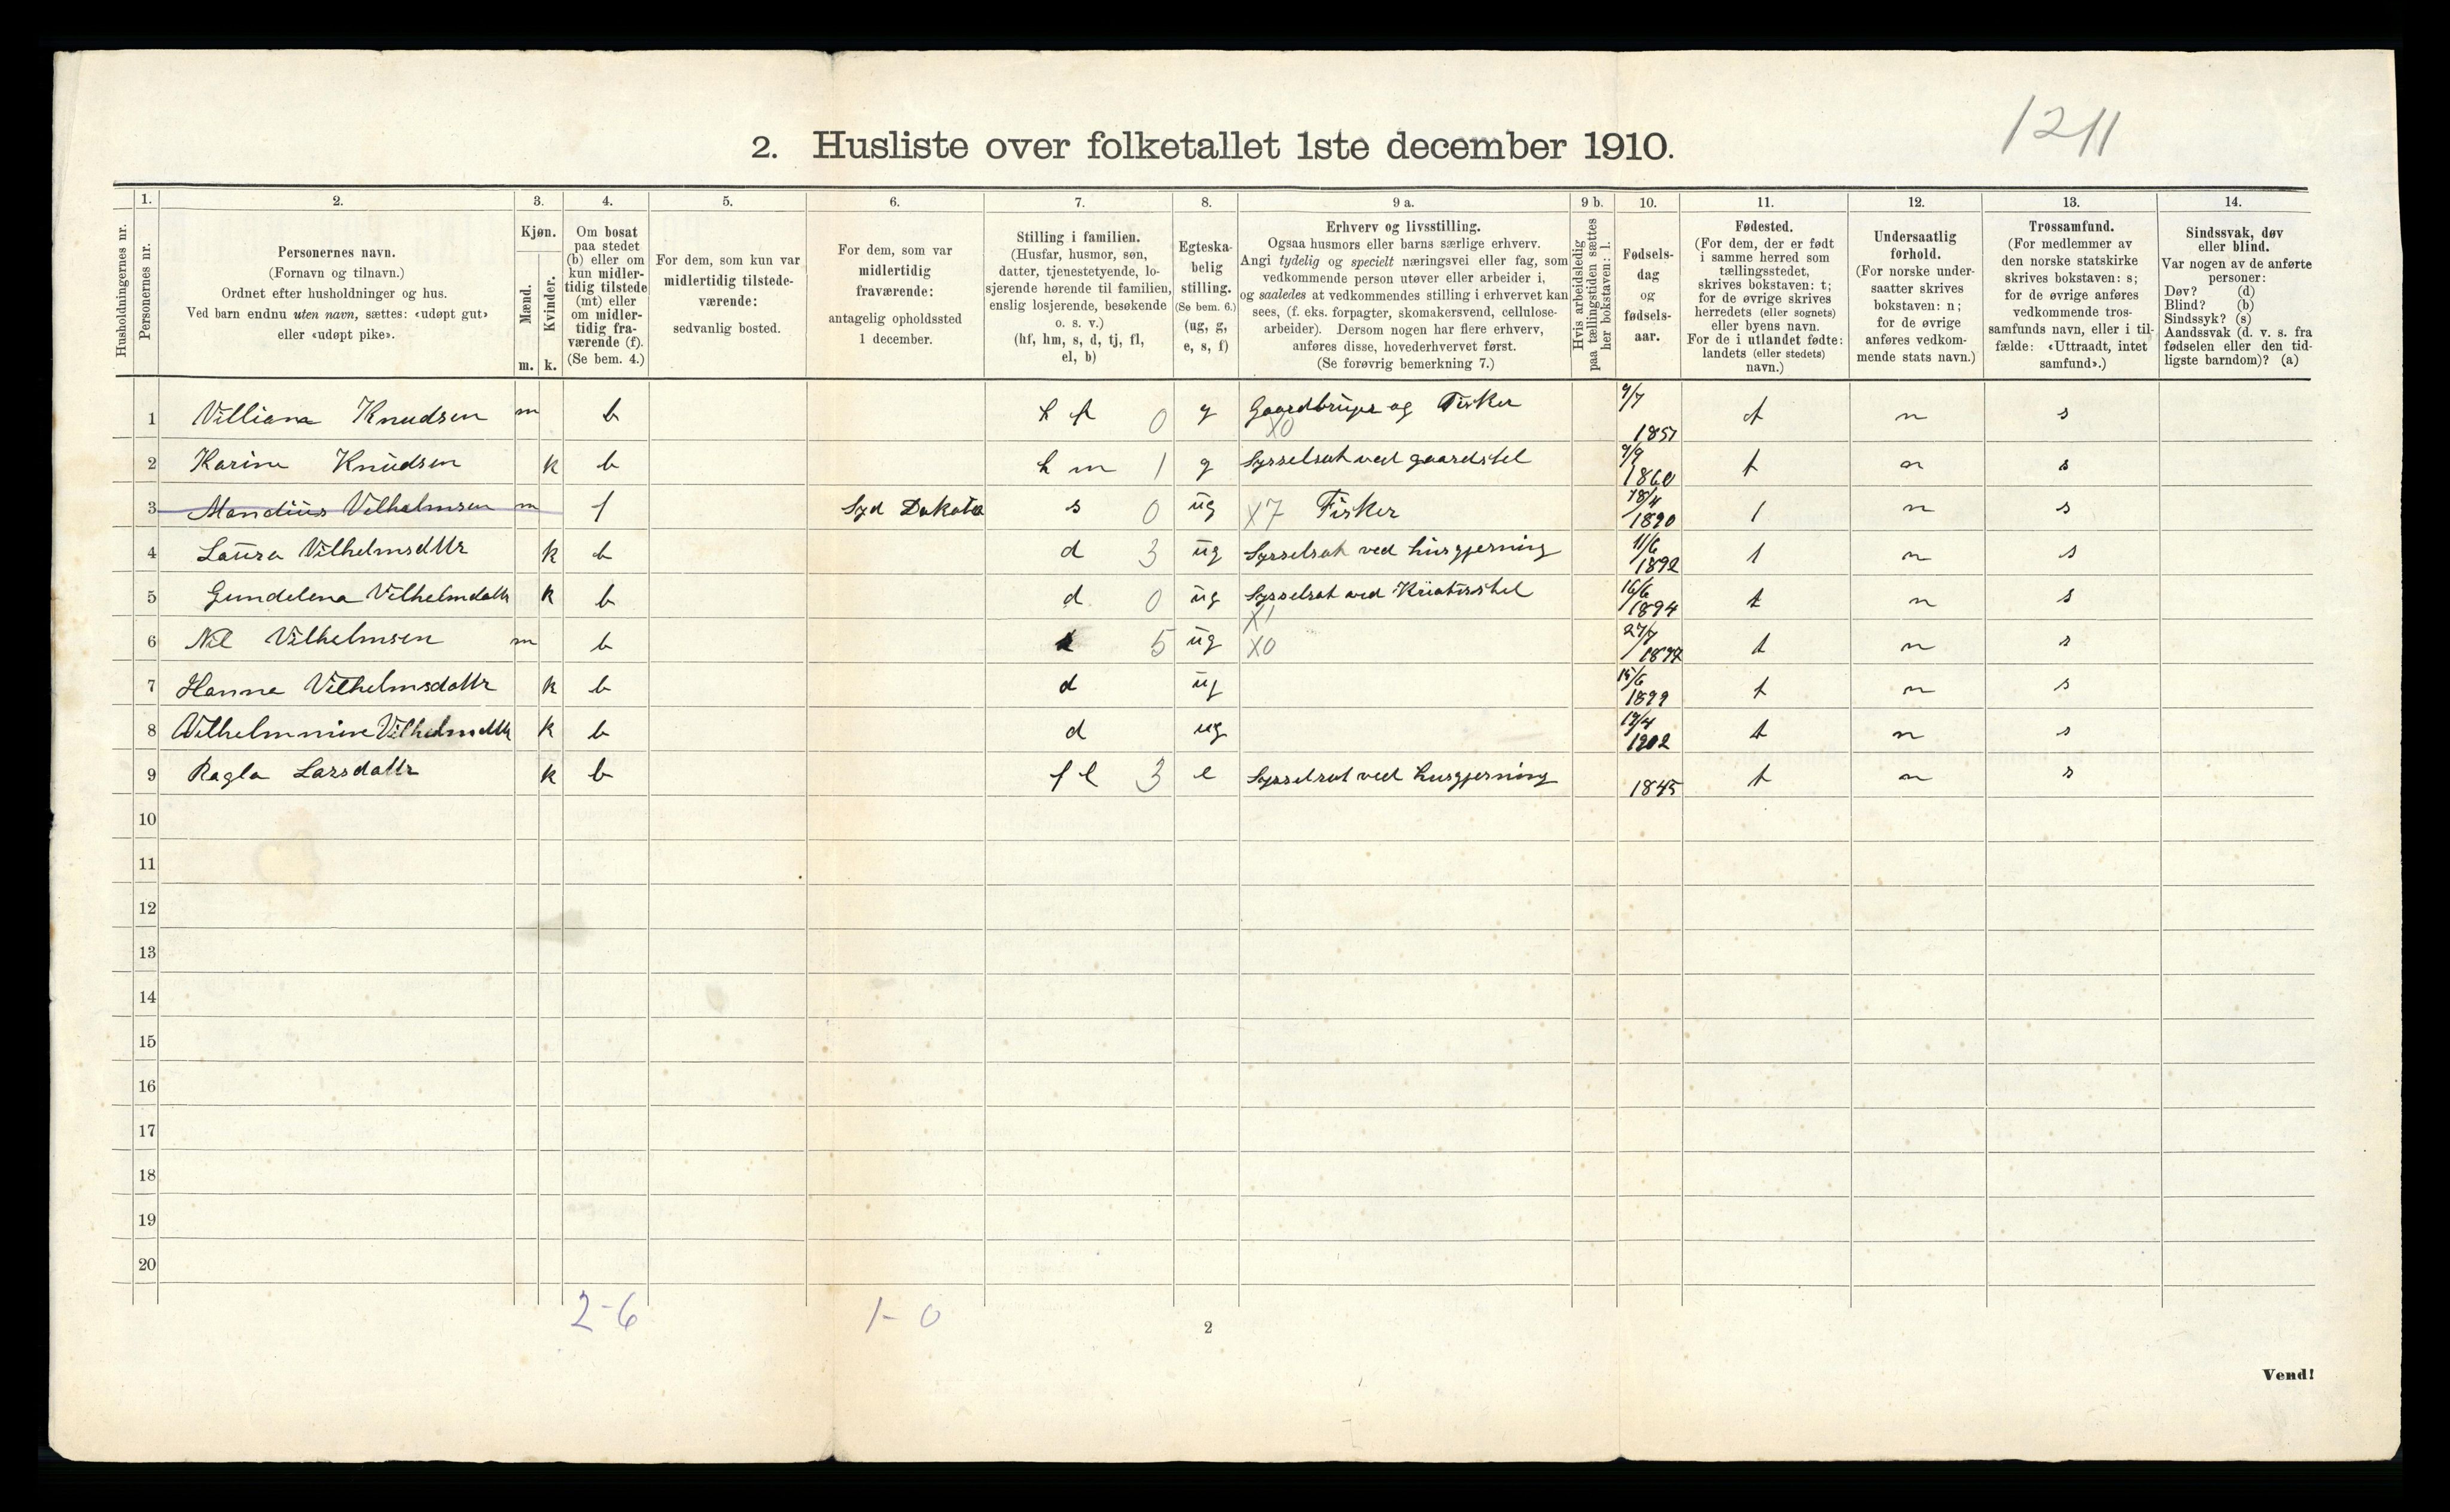 1211
2. Husliste over folketallet 1ste december 1910.
Husholdningernes nr.
1. 2. 3. 4. 5. 6. 7. 8. 9 a. 9 b. 10. 11. 12. 13. 14.
Personernes nr.
Personernes navn.
(Fornavn og tilnavn.)
Ordnet efter husholdninger og hus.
Ved barn endnu uten navn, sættes: «udøpt gut»
eller «udøpt pike».
Kjøn.
Mænd.
Kvinder.
m. k.
Om bosat
paa stedet
(b) eller om
kun midler-
tidig tilstede
(mt) eller
om midler-
tidig fra-
værende (f).
(Se bem. 4.)
For dem, som kun var
midlertidig tilstede-
værende:
sedvanlig bosted.
For dem, som var
midlertidig
fraværende:
antagelig opholdssted
1 december.
Stilling i familien.
(Husfar, husmor, søn,
datter, tjenestetyende, lo-
sjerende hørende til familien,
enslig losjerende, besøkende
o. s. v.)
(hf, hm, s, d, tj, fl,
el, b)
Egteska-
belig
stilling.
(Se bem. 6.)
(ug, g,
e, s, f)
Erhverv og livsstilling.
Ogsaa husmors eller barns særlige erhverv.
Angi tydelig og specielt næringsvei eller fag, som
vedkommende person utøver eller arbeider i,
og saaledes at vedkommendes stilling i erhvervet kan
sees, (f. eks. forpagter, skomakersvend, cellulose-
arbeider). Dersom nogen har flere erhverv,
anføres disse, hovederhvervet først.
(Se forøvrig bemerkning 7.)
Hvis arbeidsledig
paa tællingstiden sættes
her bokstaven: l.
Fødsels-
dag
og
fødsels-
aar.
Fødested.
(For dem, der er født
i samme herred som
tællingsstedet,
skrives bokstaven: t;
for de øvrige skrives
herredets (eller sognets)
eller byens navn.
For de i utlandet fødte:
landets (eller stedets)
navn.)
Undersaatlig
forhold.
(For norske under-
saatter skrives
bokstaven: n;
for de øvrige
anføres vedkom-
mende stats navn.)
Trossamfund.
(For medlemmer av
den norske statskirke
skrives bokstaven: s;
for de øvrige anføres
vedkommende tros-
samfunds navn, eller i til-
fælde: «Uttraadt, intet
samfund».)
Sindssvak, døv
eller blind.
Var nogen av de anførte
personer:
Døv? (d)
Blind? (b)
Sindssyk? (s)
Aandssvak (d. v. s. fra
fødselen eller den tid-
ligste barndom)? (a)
1 Villiam Knudsen m b h f 0 g Gaardbruger og Fisker X0 9/7 1857 t n s
2 Karine Knudsen k b h m 1 g Sysselsat ved gaardstel 9/9 1860 t n s
3 Mandius Vilhelmsen m f Syd Dakota s 0 ug X7 Fisker 18/4 1890 t n s
4 Laura Vilhelmsdttr k b d 3 ug Sysselsat ved husgjerning 11/6 1892 t n s
5 Gundelena Vilhelmdattr k b d 0 ug Sysselsat ved Kriaturstel X1 16/6 1894 t n s
6 Nil Vilhelmsen m b s 5 ug X0 27/7 1897 t n s
7 Hanna Vilhelmsdattr k b d ug 15/6 1899 t n s
8 Vilhelmmine Vilhelmsdttr k b d ug 19/4 1902 t n s
9 Ragla Larsdattr k b f l 3 e Sysselsat ved husgjerning 1845 t n s
10
11
12
13
14
15
16
17
18
19
20
2-6 1-0
2
Vend!